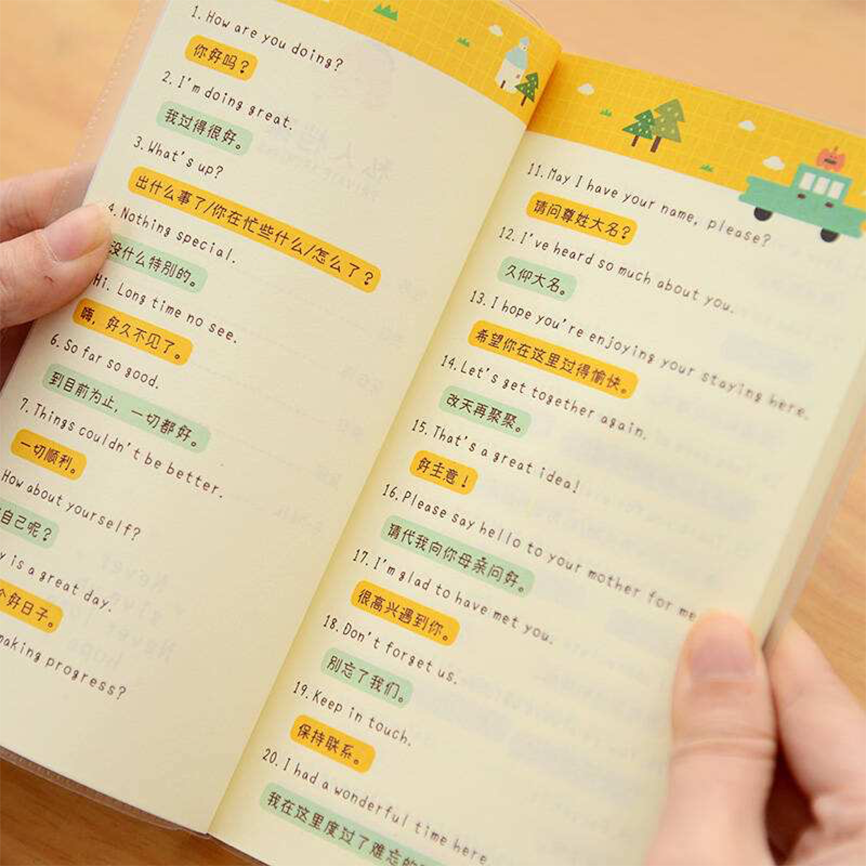 1. How are you doing?
你好吗？
2. I'm doing great.
我过得很好。
3. What's up?
出什么事了/你在忙些什么/怎么了？
4. Nothing special.
没什么特别的。
Hi. Long time no see.
嗨，好久不见了。
6. So far so good.
到目前为止，一切都好。
7. Things couldn't be better.
一切顺利。
How about yourself?
自己呢？
y is a great day.
个好日子。
making progress?
11. May I have your name, please?
请问尊姓大名？
12. I've heard so much about you.
久仰大名。
13. I hope you're enjoying your staying here.
希望你在这里过得愉快。
14. Let's get together again.
改天再聚聚。
15. That's a great idea!
好主意！
16. Please say hello to your mother for me
请代我向你母亲问好。
17. I'm glad to have met you.
很高兴遇到你。
18. Don't forget us.
别忘了我们。
19. Keep in touch.
保持联系。
20. I had a wonderful time here
我在这里度过了难忘的